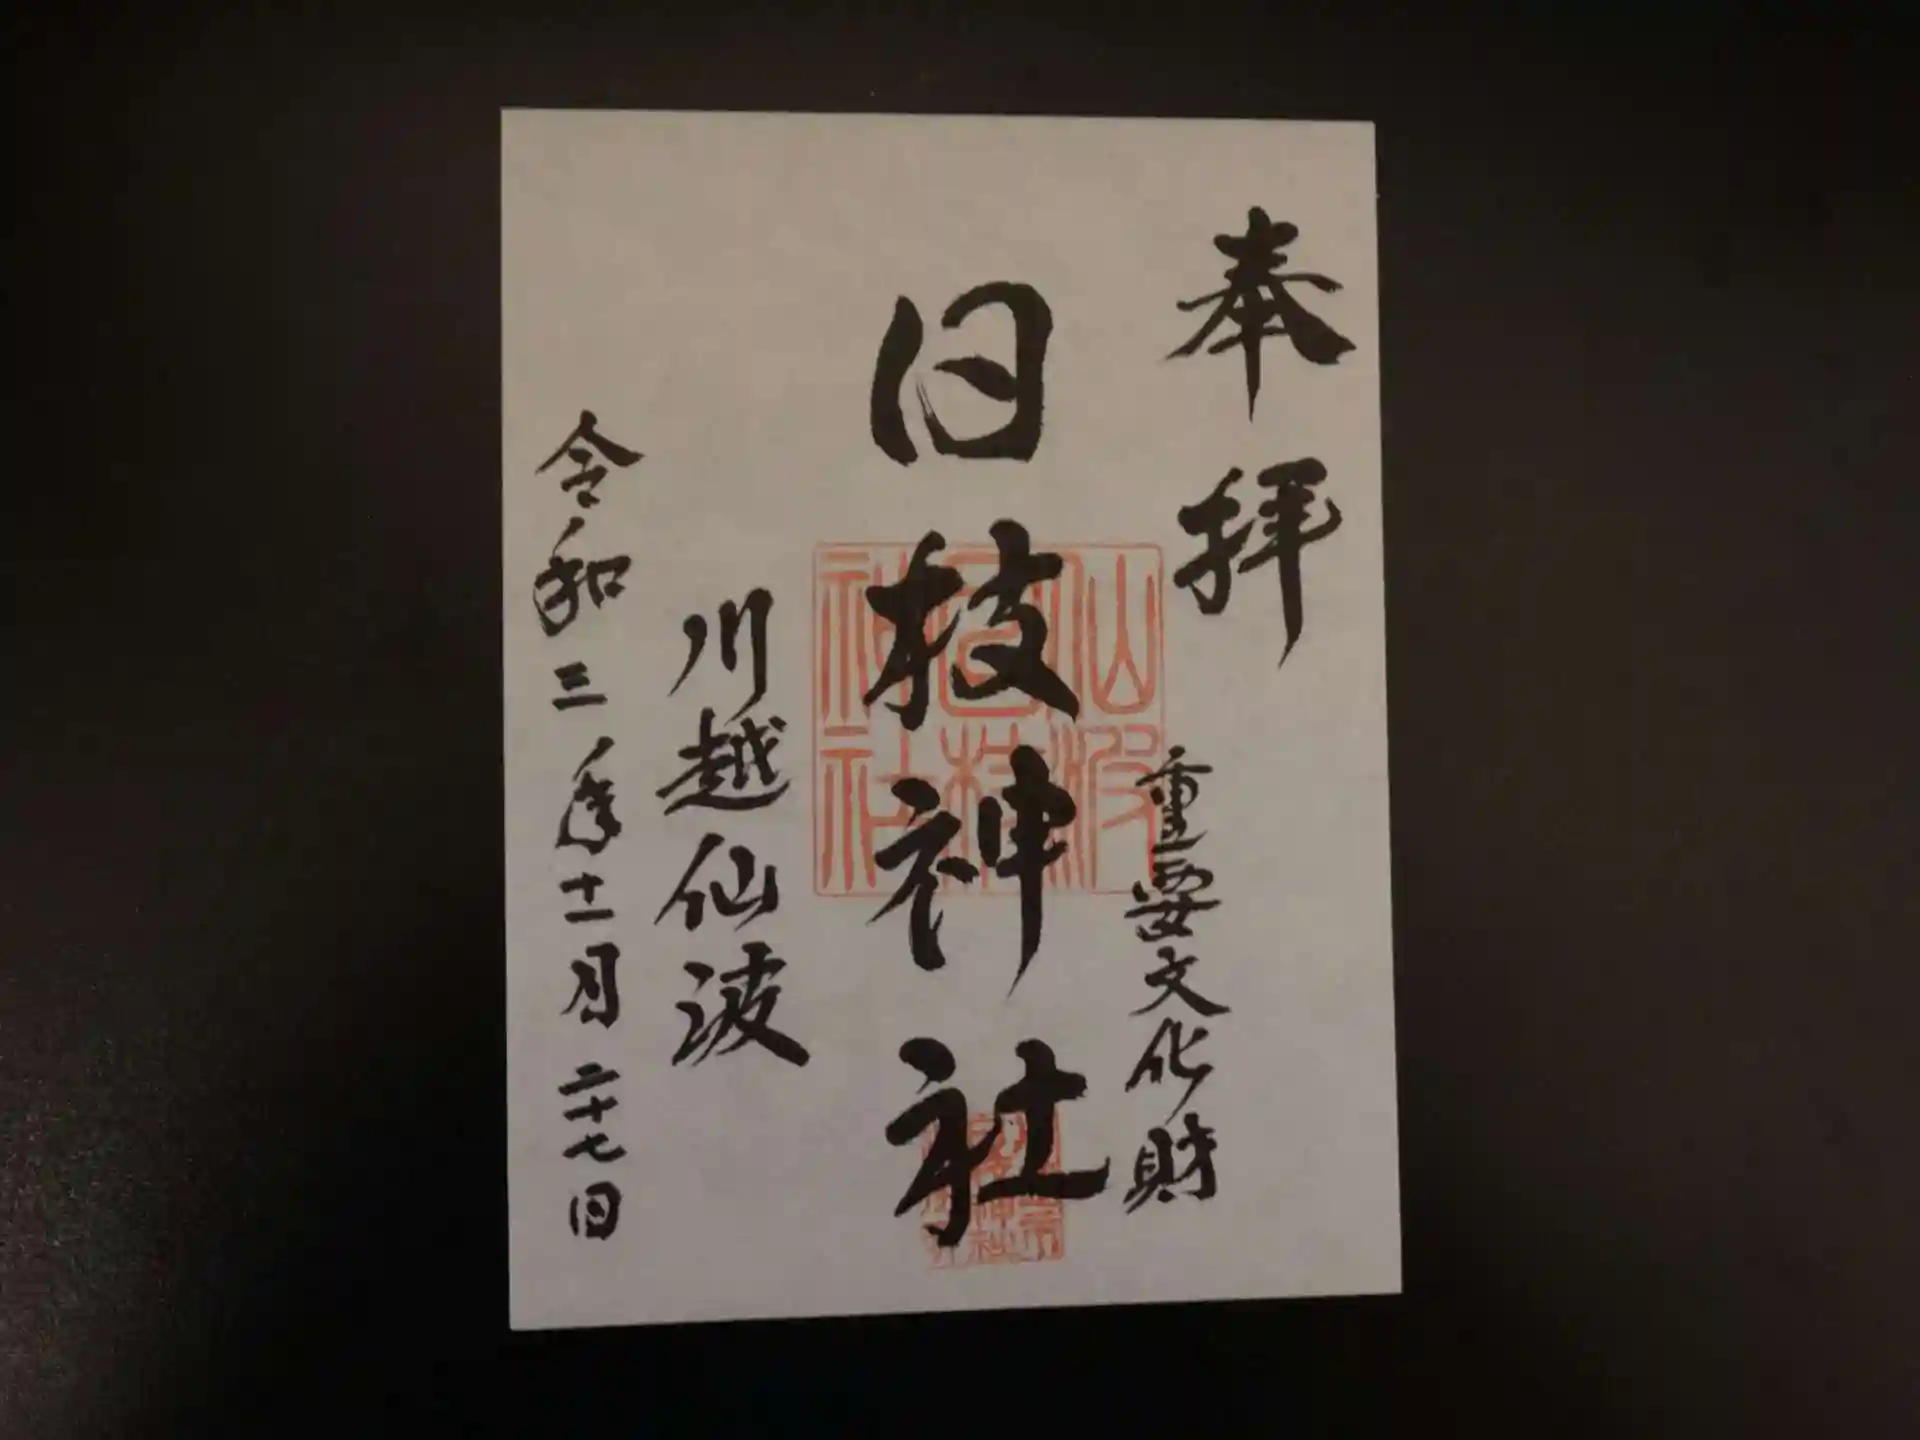 奉拝
重要文化財
日枝神社
川越仙波
令和三年十一月二十七日
仙波
日枝
神社